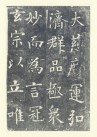 大慈廣運拯
濟群品極衆
妙而為言冠
玄宗以立唯